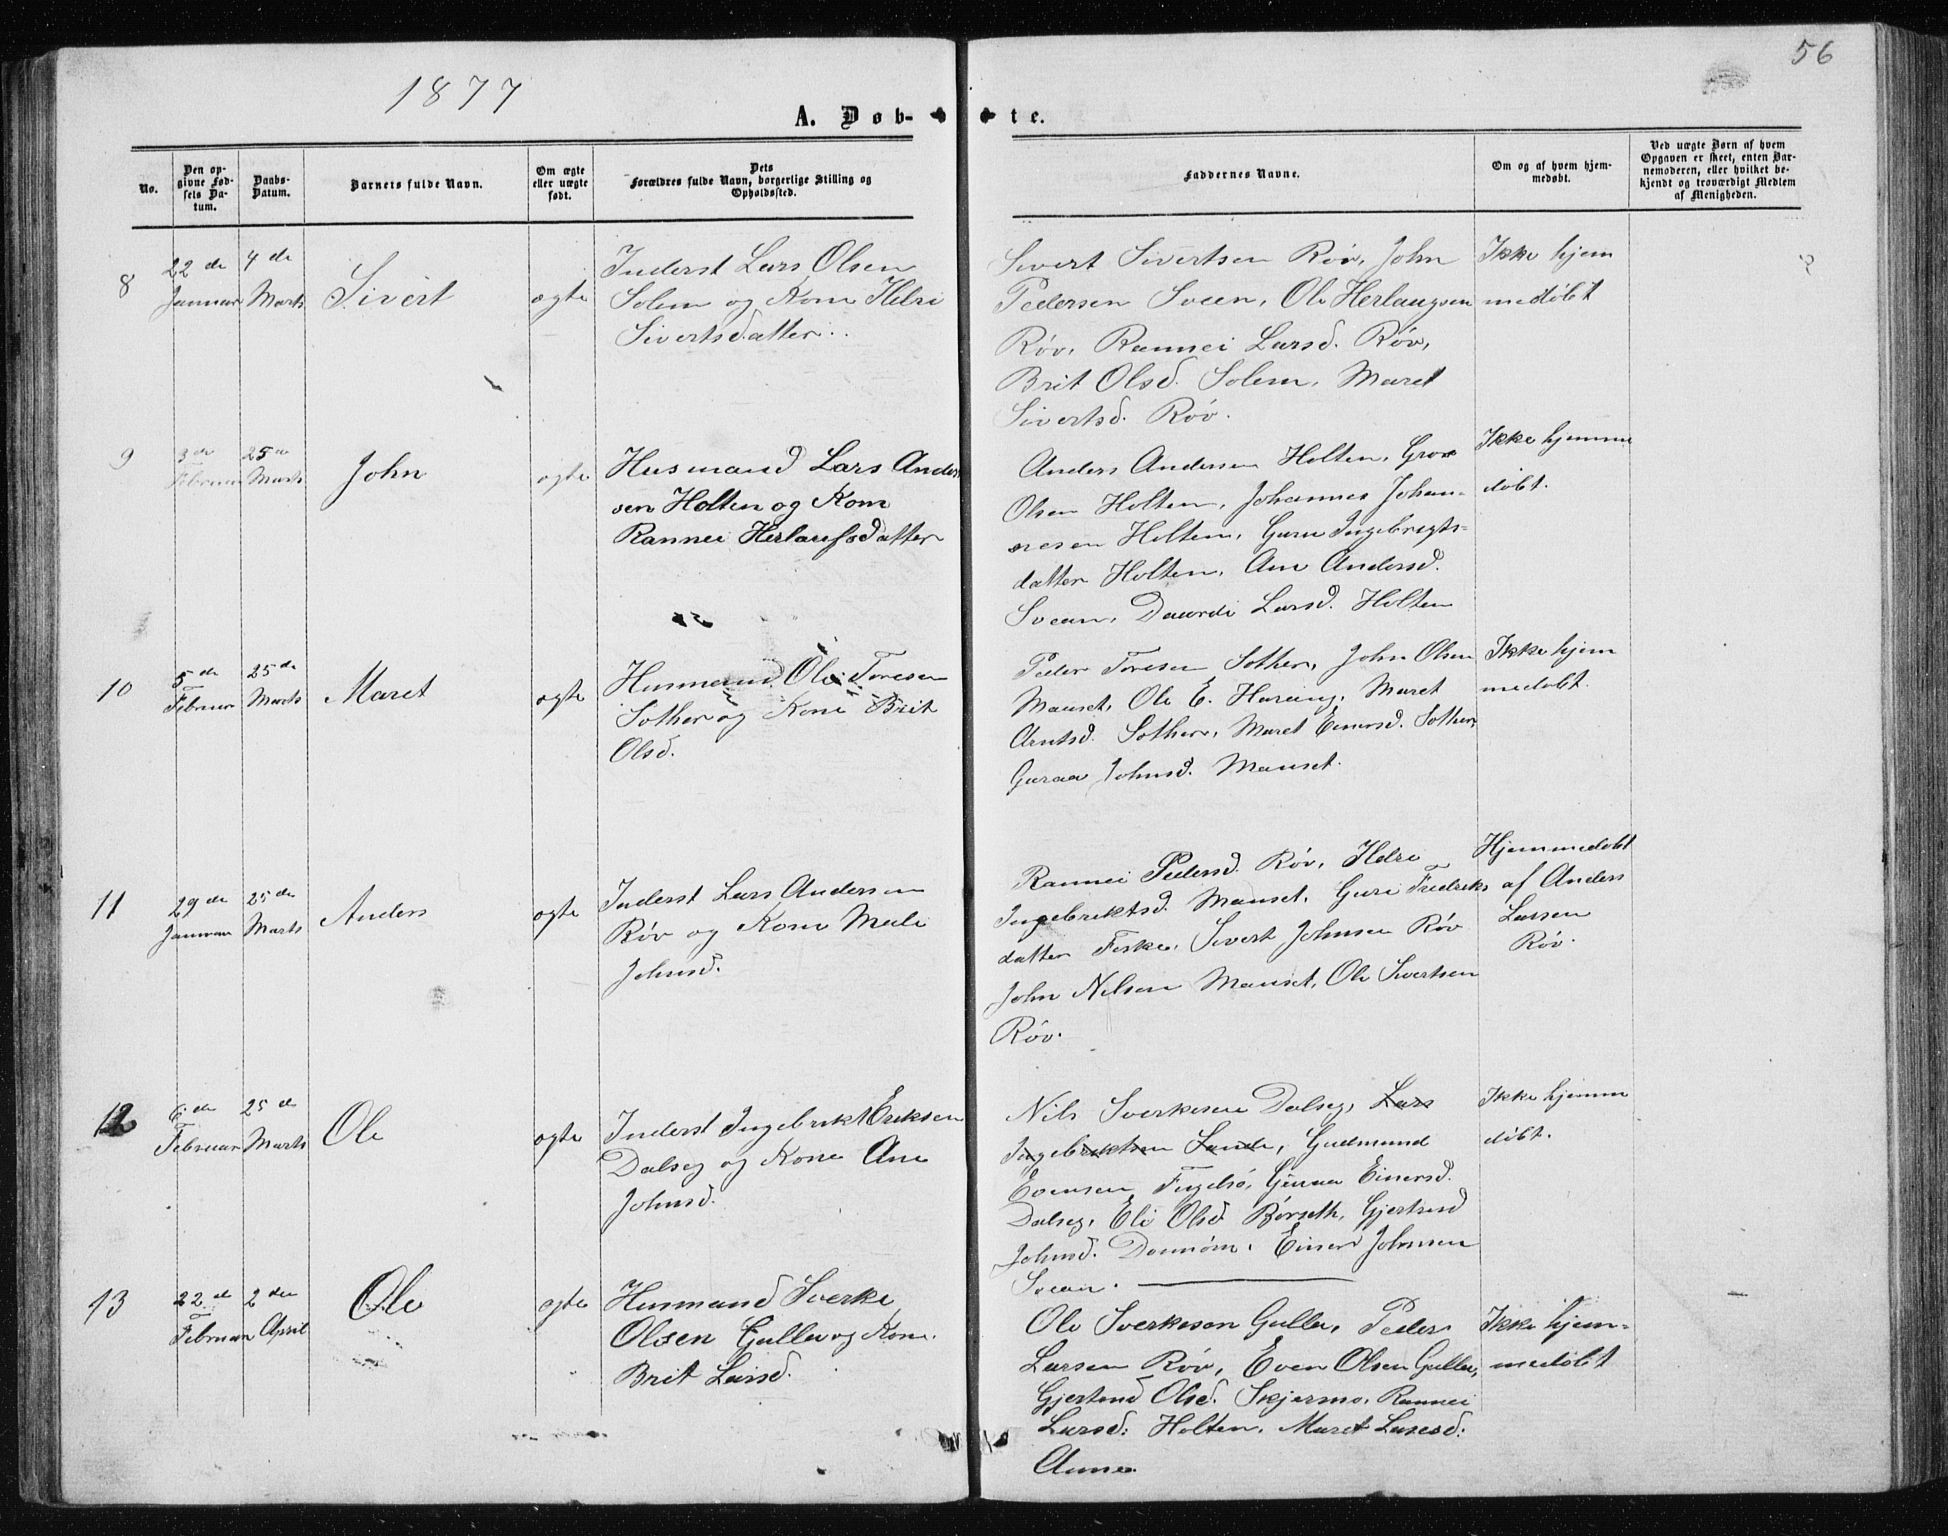 56
1877
A. Døb-
te.
No.
Den op-
givne Fød-
sels Da-
tum.
Daabs-
Datum.
Barnets fulde Navn.
Om ægte
eller uægte
født.
Dets
Forældres fulde Navn, borgerlige Stilling og
Opholdssted.
Faddernes Navne.
Om og af hvem hjem-
medøbt.
Ved uægte Børn af hvem
Opgaven er skeet, enten Bar-
nemoderen, eller hvilket be-
kjendt og troværdigt Medlem
af Menigheden.
8
22de
Januar
4de
Marts
Sivert
ægte
Inderst Lars Olsen
Solem og Kone Ildri
Sivertsdatter.
Sivert Sivertsen Røv, John
Pedersen Sveen, Ole Herlaugsen
Røv, Rannei Larsd. Røv,
Brit Olsd. Solem, Maret
Sivertsd. Røv.
Ikke hjem
medøbt
9
3de
Februar
25de
Marts
John
ægte
Husmand Lars Ander
sen Holten og Kone
Rannei Herlaugsdatter
Anders Andersen Holten,
Olsen Holten, Johannes Johan-
nesen Holten, Guru Ingebregts-
datter Holten, Ane Andersd.
Svean, Larsd. Holten
Ikke hjemme
døbt.
10
5de
Februar
25de
Marts
Maret
ægte
Husmand Ole Toresen
Sother og Kone Brit
Olsd.
Peder Toresen Sother, John Olsen
Mauset, Ole E. Harang, Maret
Arntsd. Sother, Maret Einersd. Sother,
Guraa Johnsd. Mauset.
Ikke hjem
medøbt.
11
29de
Januar
25de
Marts
Anders
ægte
Inderst Lars Andersen
Røv og Kone Mali
Johnsd.
Rannei Pedersd. Røv, Ildri
Ingebriktsd. Mauset, Guri Fredriks
datter Foske, Sivert Johnsen Røv
John Nilsen Mauset, Ole Sivertsen
Røv.
Hjemmedøbt
af Anders
Larsen
Røv.
12
6de
Februar
25de
Marts
Ole
ægte
Inderst Ingebrikt Eriksen
Dalseg og Kone Ane
Johnsd.
Nils Sverkesen Dalseg, Lars
Ingebriktsen Lande, Gudmund
Evensen Fugelsø, Guraa Einersd.
Dalseg, Eli Olsd. Børseth, Gjertrud
Johnsd. Einer Johnsen
Svean.
Ikke hjemme
døbt.
13
22de
Februar
2den
April
Ole
ægte
Husmand Sverke
Olsen Gulla og Kone
Brit Larsd.
Ole Sverkesen Gulla, Peder
Larsen Røv, Even Olsen Gulla,
Gjertrud Olsd. Skjermo, Rannei
Larsd. Holten, Maret Larsd.
Aune
Ikke hjem-
medøbt